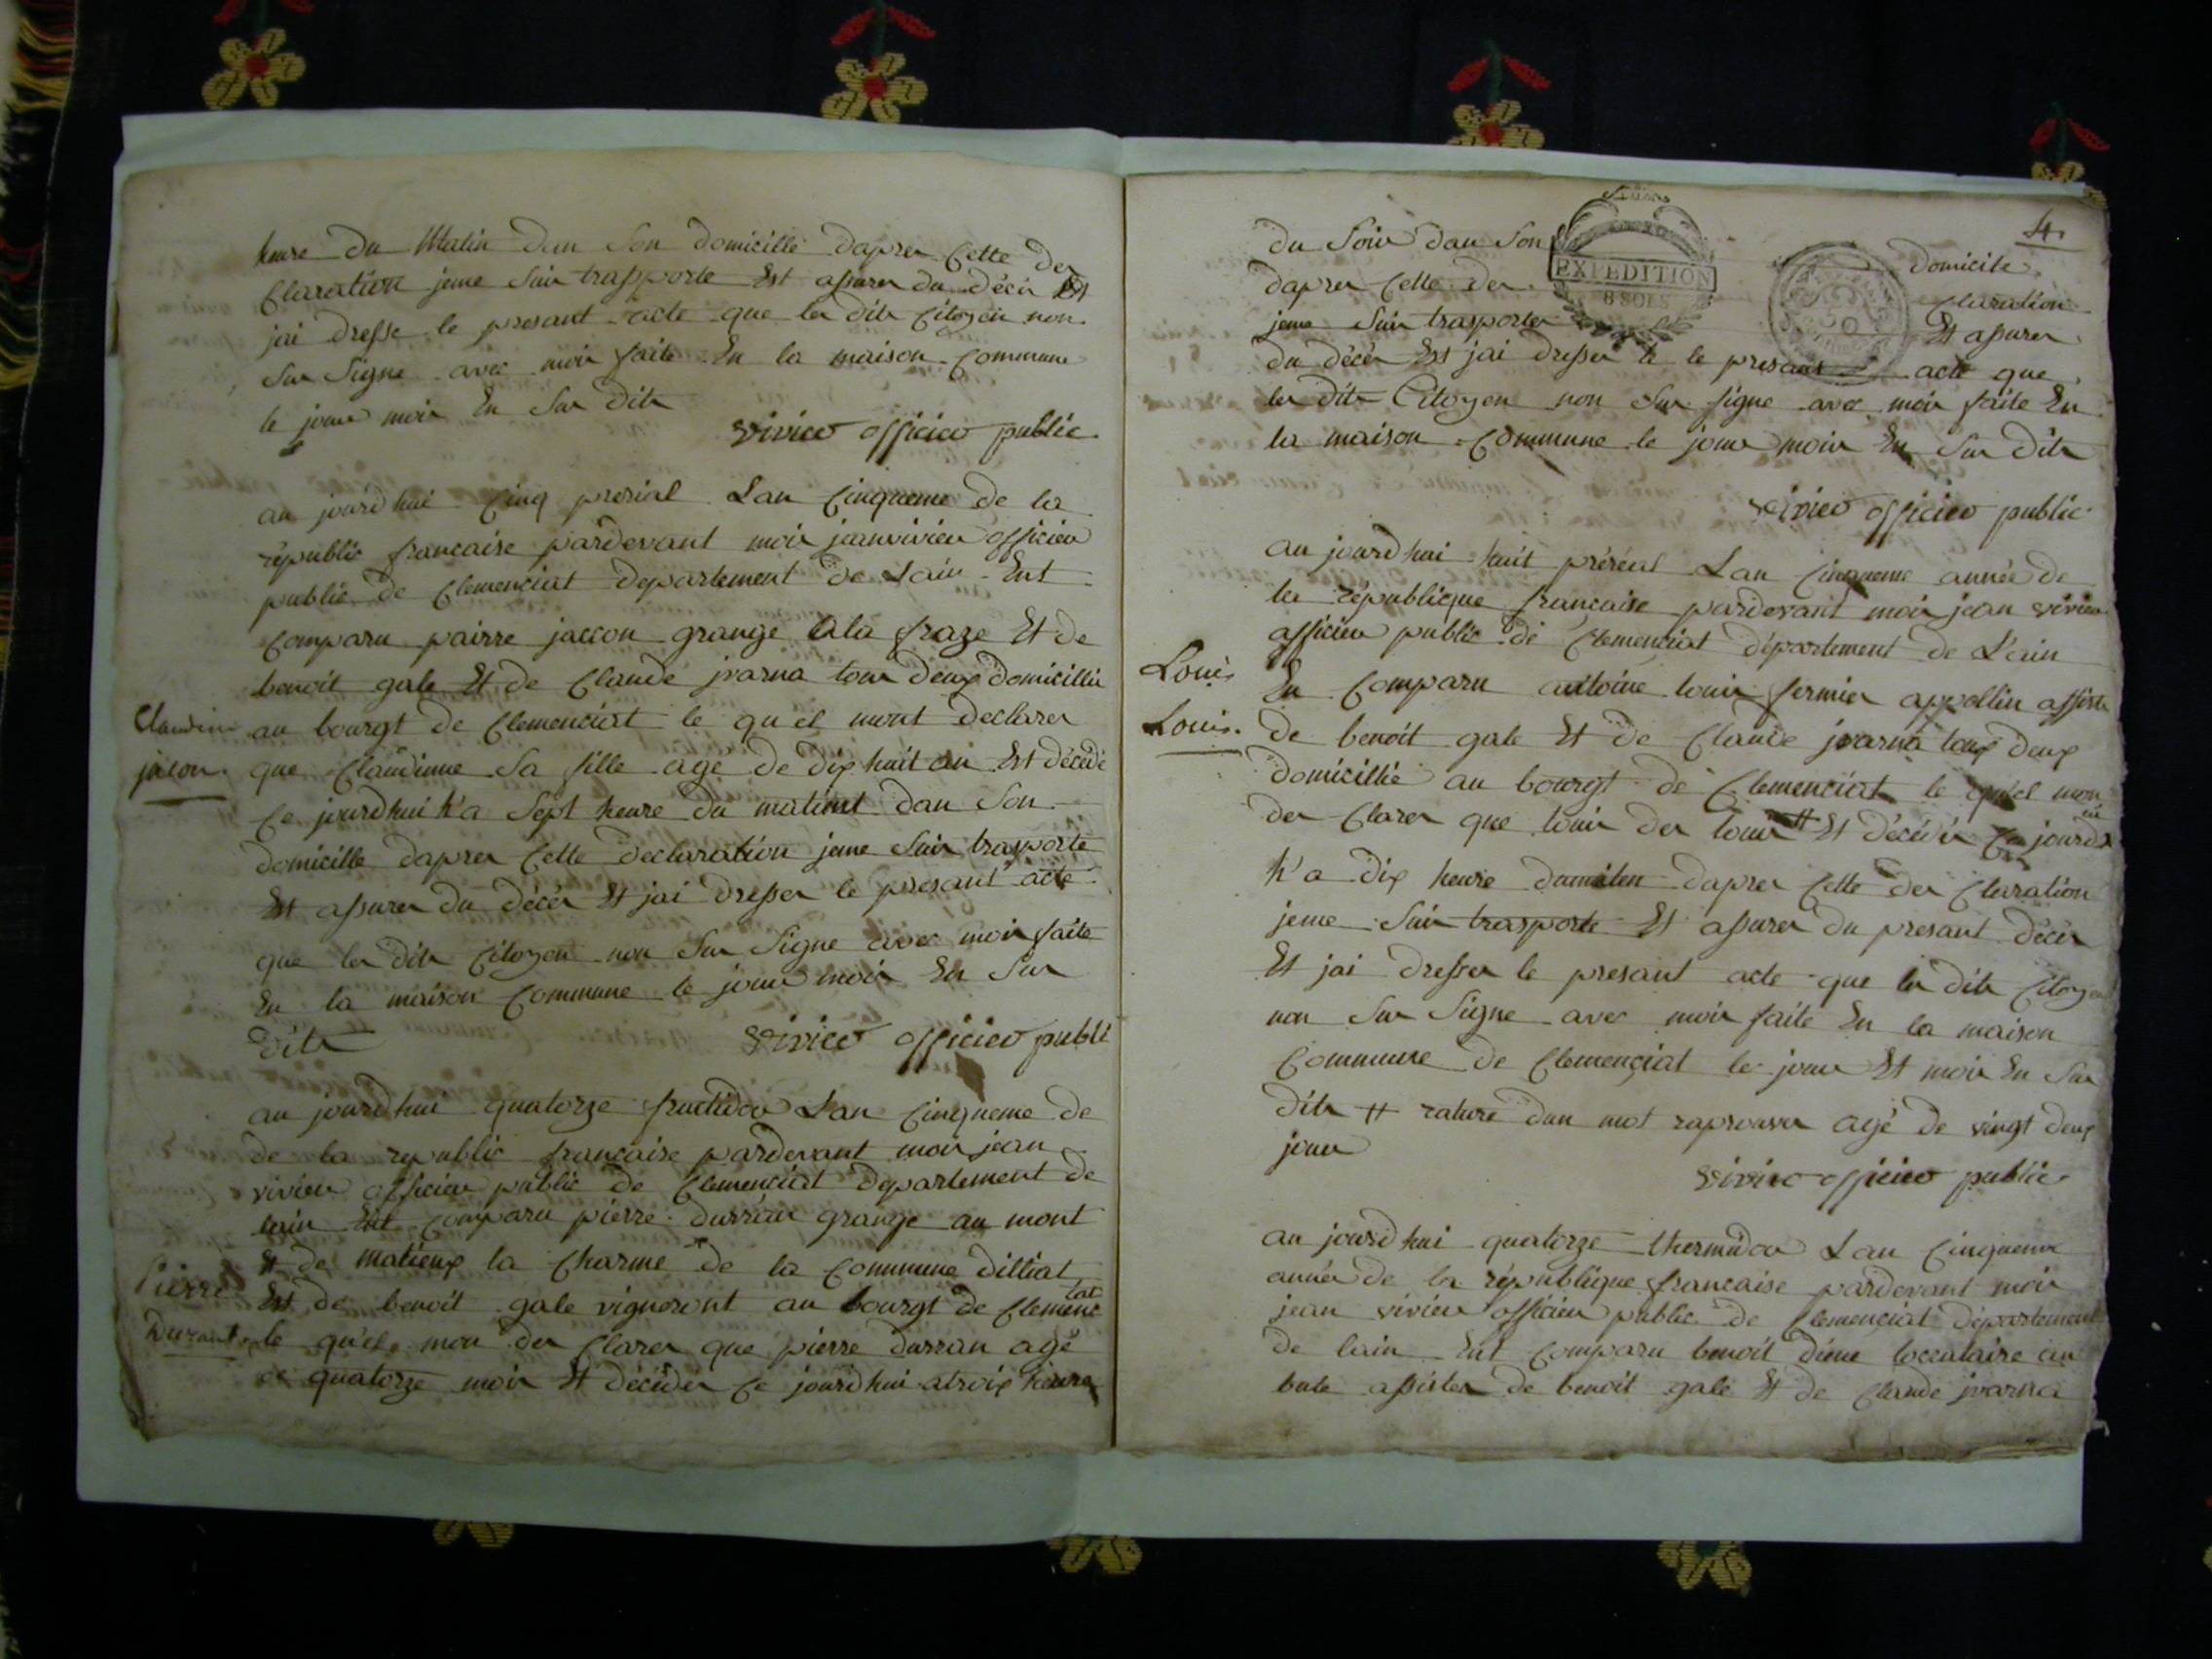 heure du Matin dan Son domicille dapres Cette de
Claration jeme Suis trasporte Est assurer du décès Est
jai dresse le presant acte que les dits Citoyen non
Sus Signe avec moi faite En la maison Commune
le jour mois En Sus dits
vivier officier public
au jourdhui Cinq prerial Lan Cinqueme de la
républic francaise pardevant moi jean vivier officier
public de Clemenciat departement de Lain Ent
Comparu pairre jaccon grange a la fraze Et de
benoit gale Et de Claude jvarna tous deux domicillié
au bourgt de Clemenciat le quel mont declarer
Claudine
jacon
que Claudinne Sa fille age de dix huit an Est décédé
Ce jourdhui h'a Sept heure du matint dan Son
domicille dapres Cette declaration jeme Suis trasporte
Est assurer du décès Et jai dresser le presant acte
que les dits Citoyen non Sus Signe avec moi faite
En la maison Commune le jour mois En Sus
dits
vivier officier publi
au jourdhui quatorze fructidor Lan Cinqueme de
de la republic francaise pardevant moi jean
vivier officier public de Clemenciat departement de
lain Ent Comparu pierre durran grange au mont
Et de matieux la Charme de la Commune dilliat
Pierre
Durant
Est de benoit gale vigneront au bourgt de Clemenc
iat
le quel mon de Clarer que pierre durran agé
de quatorze mois Et décéder Ce jourdhui atroix heure
4
du Soir dan Son domicile
EXPEDITION
8 SOLS
dapres Cette de Claration
jeme Suis trasporter Et assurer
du décès Est jai dresser le presant acte que
les dits Citoyen non Sus signe avec moi faite En
la maison Commune le jour mois En Sus dits
vivier officier public
au jourdhui huit préréal Lan Cinqueme année de
la république francaise pardevant moi jean vivier
officier public de Clemenciat département de L'ain
Louis
Louis
En Comparu antoine louis fermier appollin assiste
de benoit gale Et de Claude jvarna toux deux
domicillié au bourgt de Clemenciat le quel mon
de Clarer que louis des louis # Et décéder Ce jourd
h'a dix heure dumaten dapres Cette de Claration
jeme Suis trasporte Et assurer du presant décès
Et jai dresser le presant acte que les dits Citoyen
non Sus Signe avec moi faite En la maison
Commune de Clemenciat le jour Et mois En Sus
dits # rature dun mot raprouver agé de vingt deux
jour
vivier officier public
au jourdhui quatorze thermidor Lan Cinqueme
année de la république francaise pardevant moi
jean vivier officier public de Clemenciat département
de lain Ent Comparu benoit dime loccataire au
bute assister de benoit galé Et de Claude jvarna